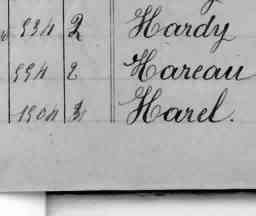 994 2 Hardy
994 2 Hareau
1904 3 Harel.